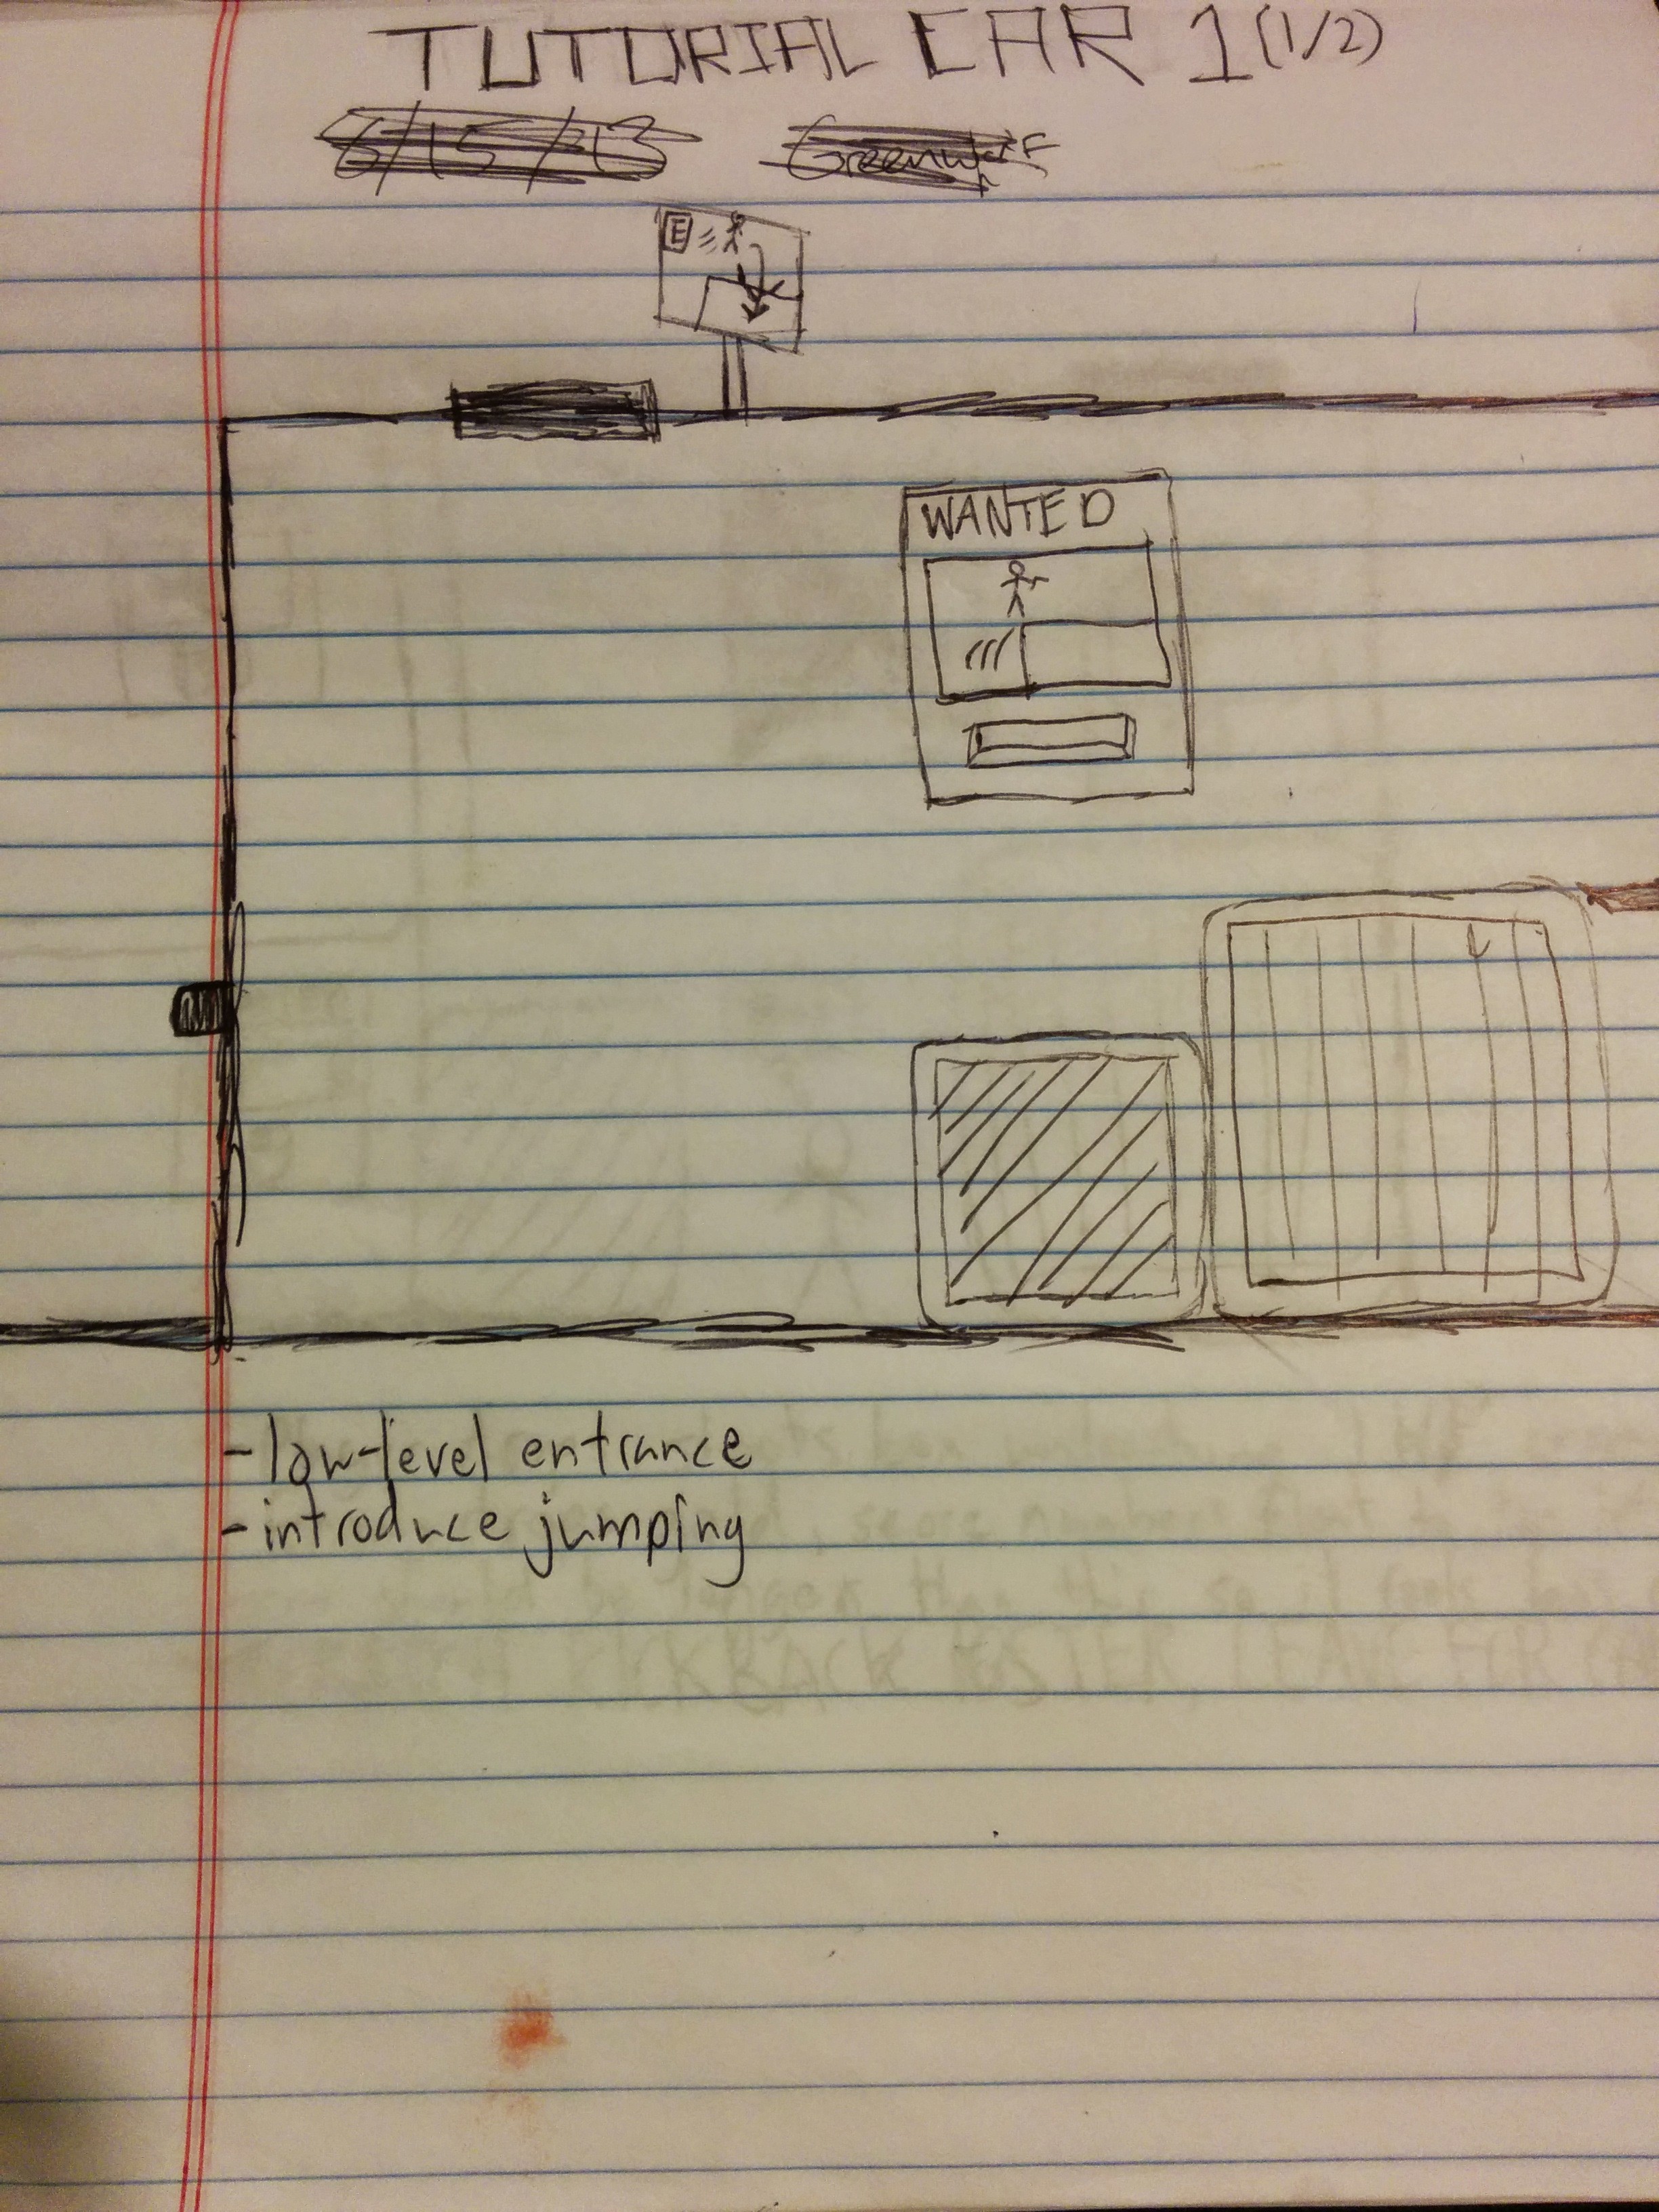 TUTORIAL CAR 1 (1/2)
6/15/13
E
WANTED
- low-level entrance
- introduce jumping